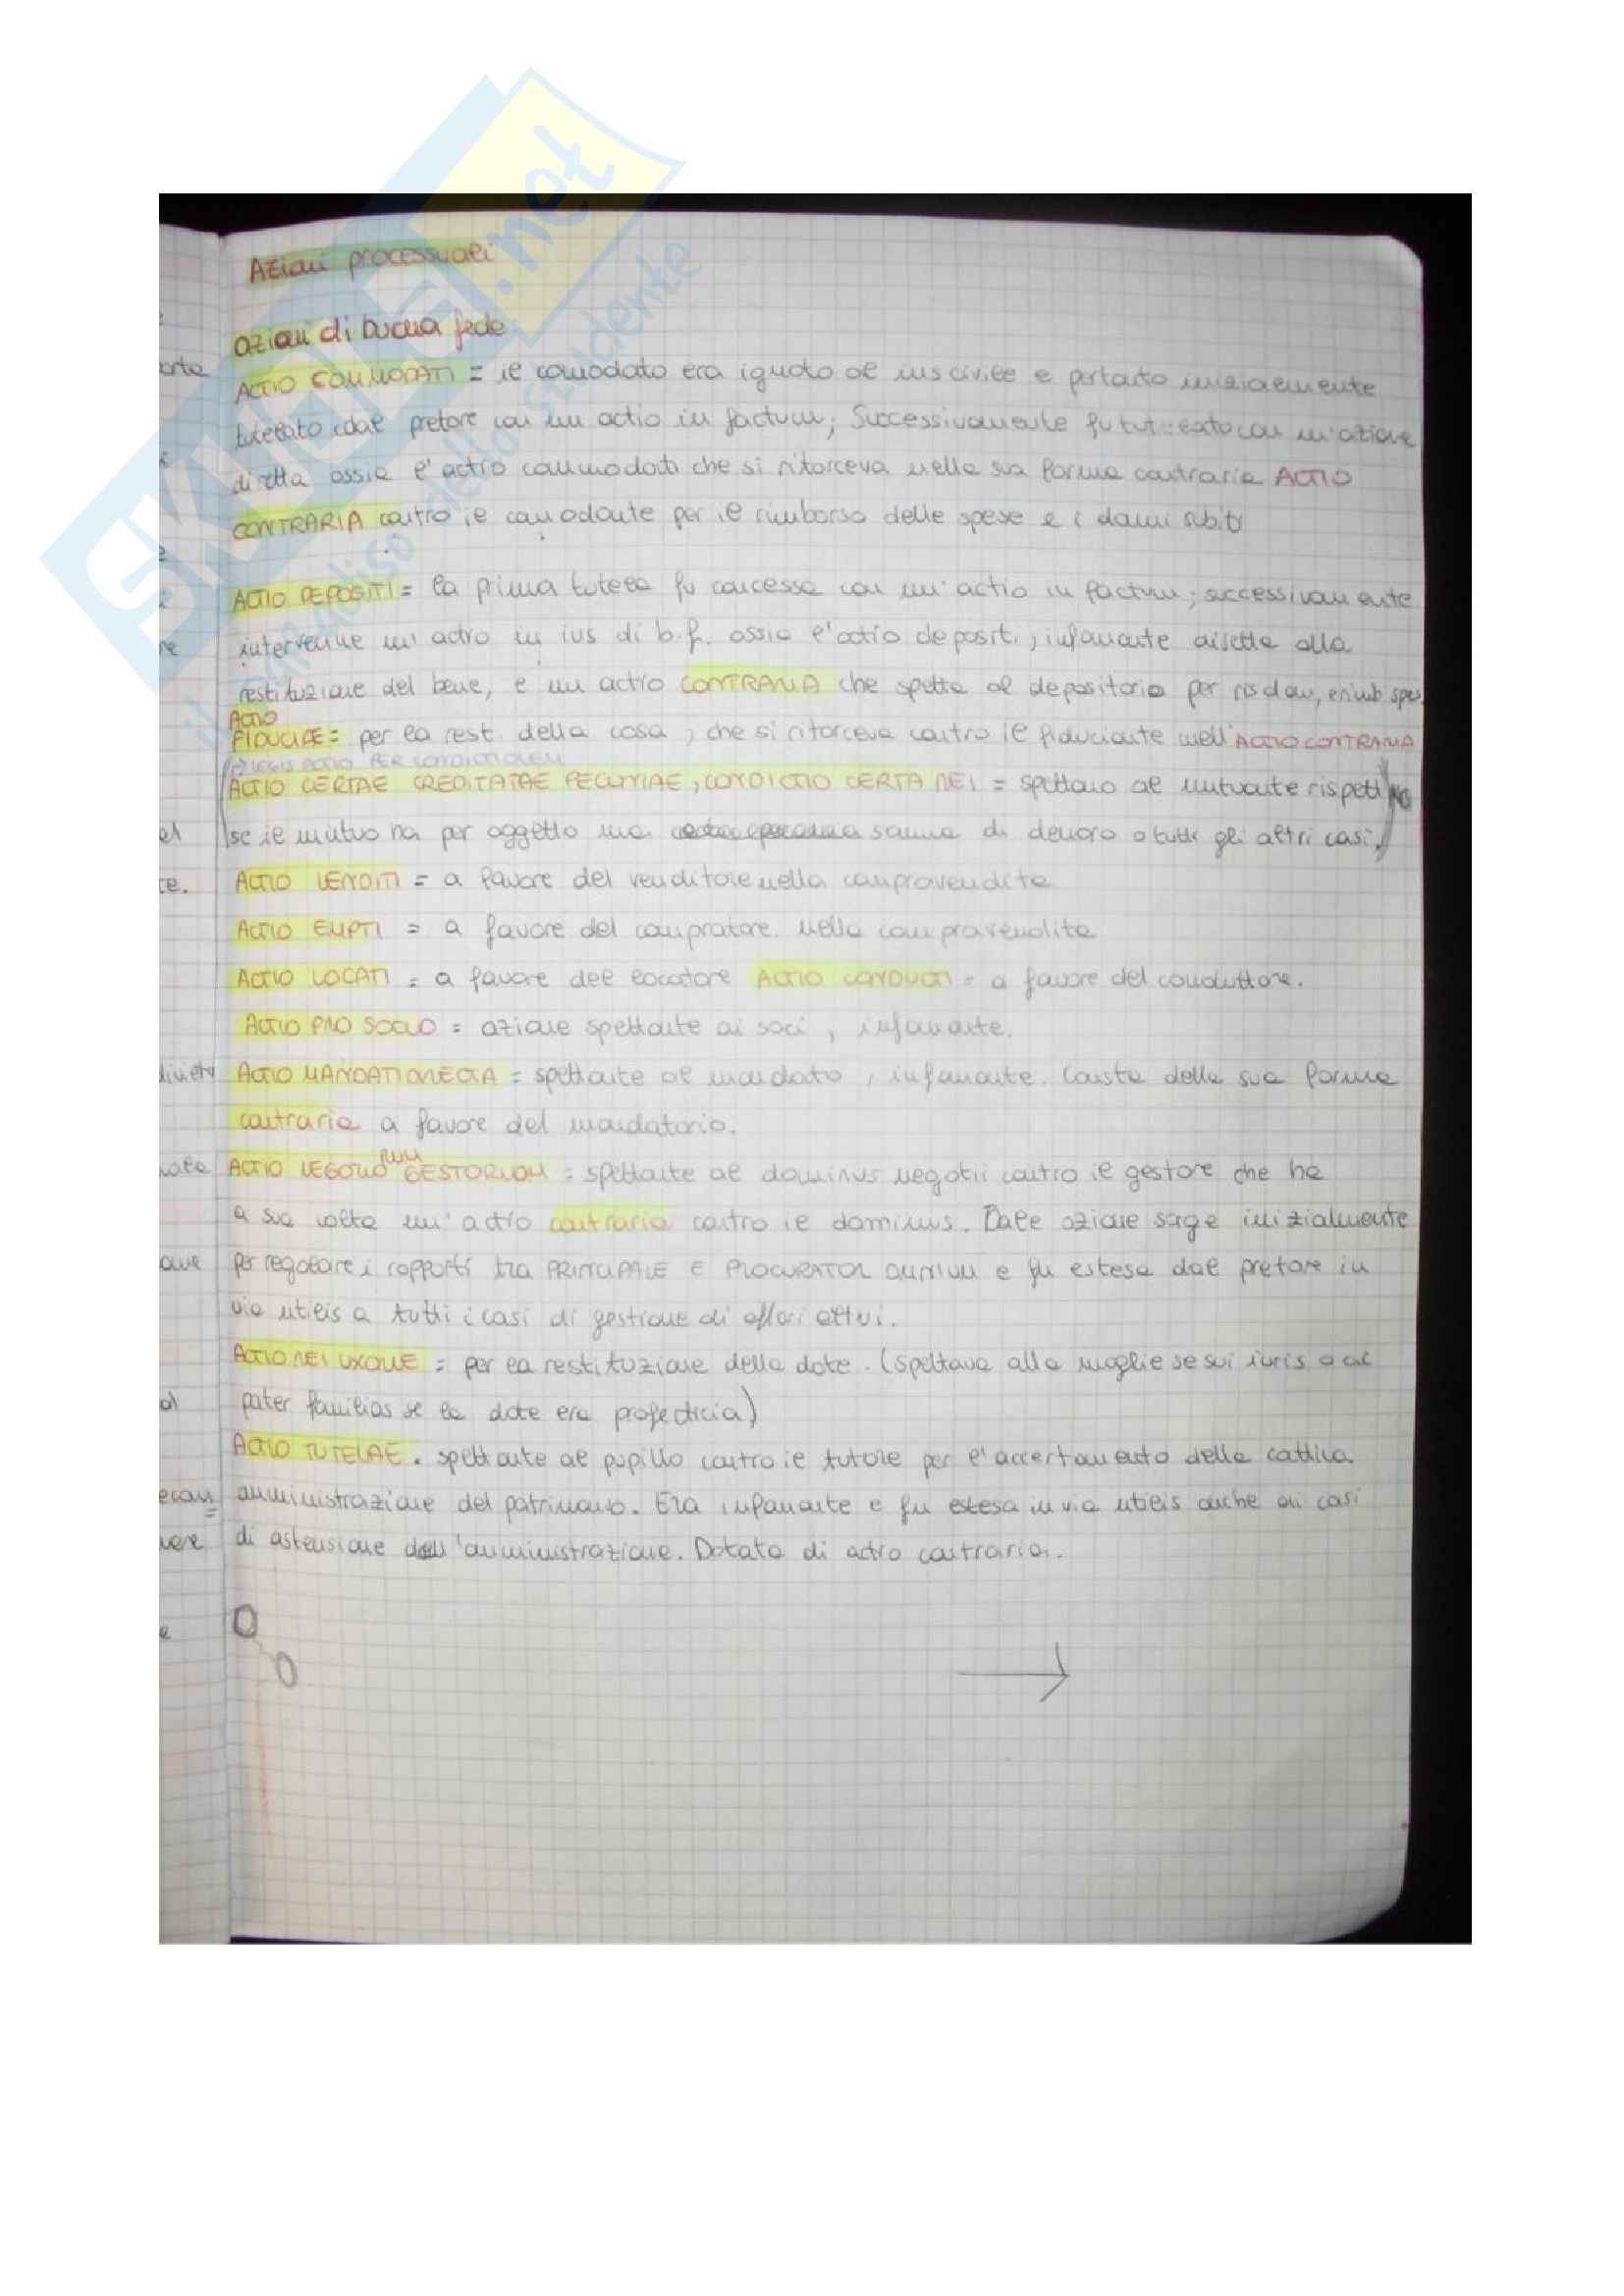 Azioni processuali
azioni di buona fede
ACTIO COMMODATI = il comodato era ignoto al ius civile e pertanto inizialmente
tutelato dal pretore con un actio in factum; Successivamente fu con un'azione
diretta ossia l'actio commodati che si ritorceva nella sua forma contraria ACTIO
CONTRARIA contro il comodante per il rimborso delle spese e i danni subiti
ACTIO DEPOSITI = la prima tutela fu concessa con un'actio in factum; successivamente
intervenne un'actio in ius di b.f. ossia l'actio depositi, infamante diretta alla
restituzione del bene, e un actio CONTRARIA che spetta al depositario per ris dann, e rimb spes.
ACTIO
FIDUCIAE = per la rest. della cosa, che si ritorceva contro il fiduciante nell'ACTIO CONTRARIA
LEGIS ACTIO PER CONDICTIONEM
ACTIO CERTAE CREDITATAE PECUNIAE, CONDICTIO CERTA REI = spettano al mutuante rispett
se il mutuo ha per oggetto una somma di denaro o tutti gli altri casi.
ACTIO VENDITI = a favore del venditore nella compravendita
ACTIO EMPTI = a favore del compratore nella compravendita
ACTIO LOCATI = a favore del locatore ACTIO CONDUCTI = a favore del conduttore.
ACTIO PRO SOCIO = azione spettante ai soci, infamante.
ACTIO MANDATI DIRECTA = spettante al mandato, infamante. Consta della sua forma
contraria a favore del mandatario.
ACTIO NEGOTIORUM GESTORUM = spettante al dominus negotii contro il gestore che ha
a sua volta un'actio contraria contro il dominus. Tale azione sorge inizialmente
per regolare i rapporti tra PRINCIPALE E PROCURATOR OMNIUM e fu estesa dal pretore in
via utilis a tutti i casi di gestione di affari altrui.
ACTIO REI UXORIE = per la restituzione della dote. (spettava alla moglie se sui iuris o al
pater familias se la dote era profecticia)
ACTIO TUTELAE. spettante al pupillo contro il tutore per l'accertamento della cattiva
amministrazione del patrimonio. Era infamante e fu estesa in via utilis anche ai casi
di astensione dall'amministrazione. Dotata di actio contraria.
SKUOLA.net
il paradiso dello studente